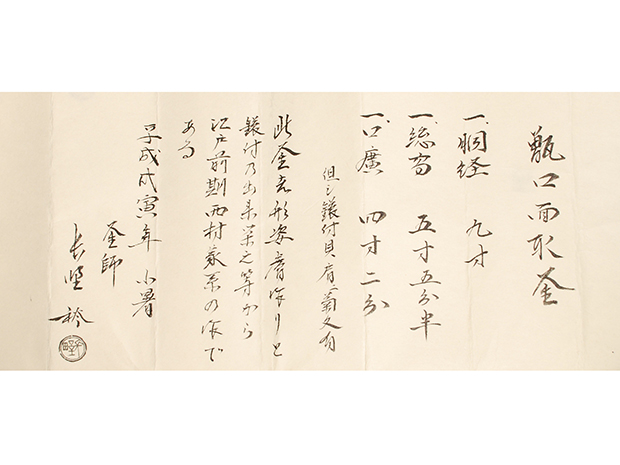 甑口面取釜
一、胴経 九寸
一、総高 五寸五分半
一、口廣 四寸二分
但シ鐶付貝肩ニ菊文有
此釜者形姿膚作りと
鐶付乃出来栄え等から
江戸前期西村家系の作で
ある
平成戊寅年 小暑
釜師
長野